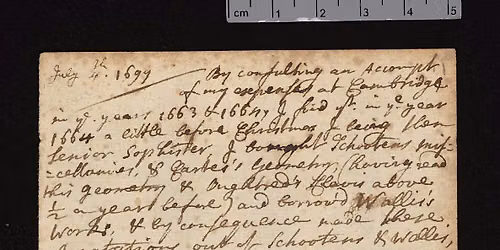 cm 1 2 3 4 5
July 4th. 1699 By consulting an accompt
of my expenses at Cambridge
in ye. years 1663 & 1664, I find yt. in ye. year
1664 a little before Christmas I being then
senior Sophister, I bought Schooten's Mis-
=cellanies, & Cartes's Geometry (having read
this Geometry & Oughtred's Clavis above
½ a year before) and borrowed Wallis's
works, & by consequence made these
Annotations out of Schooten & Wallis,